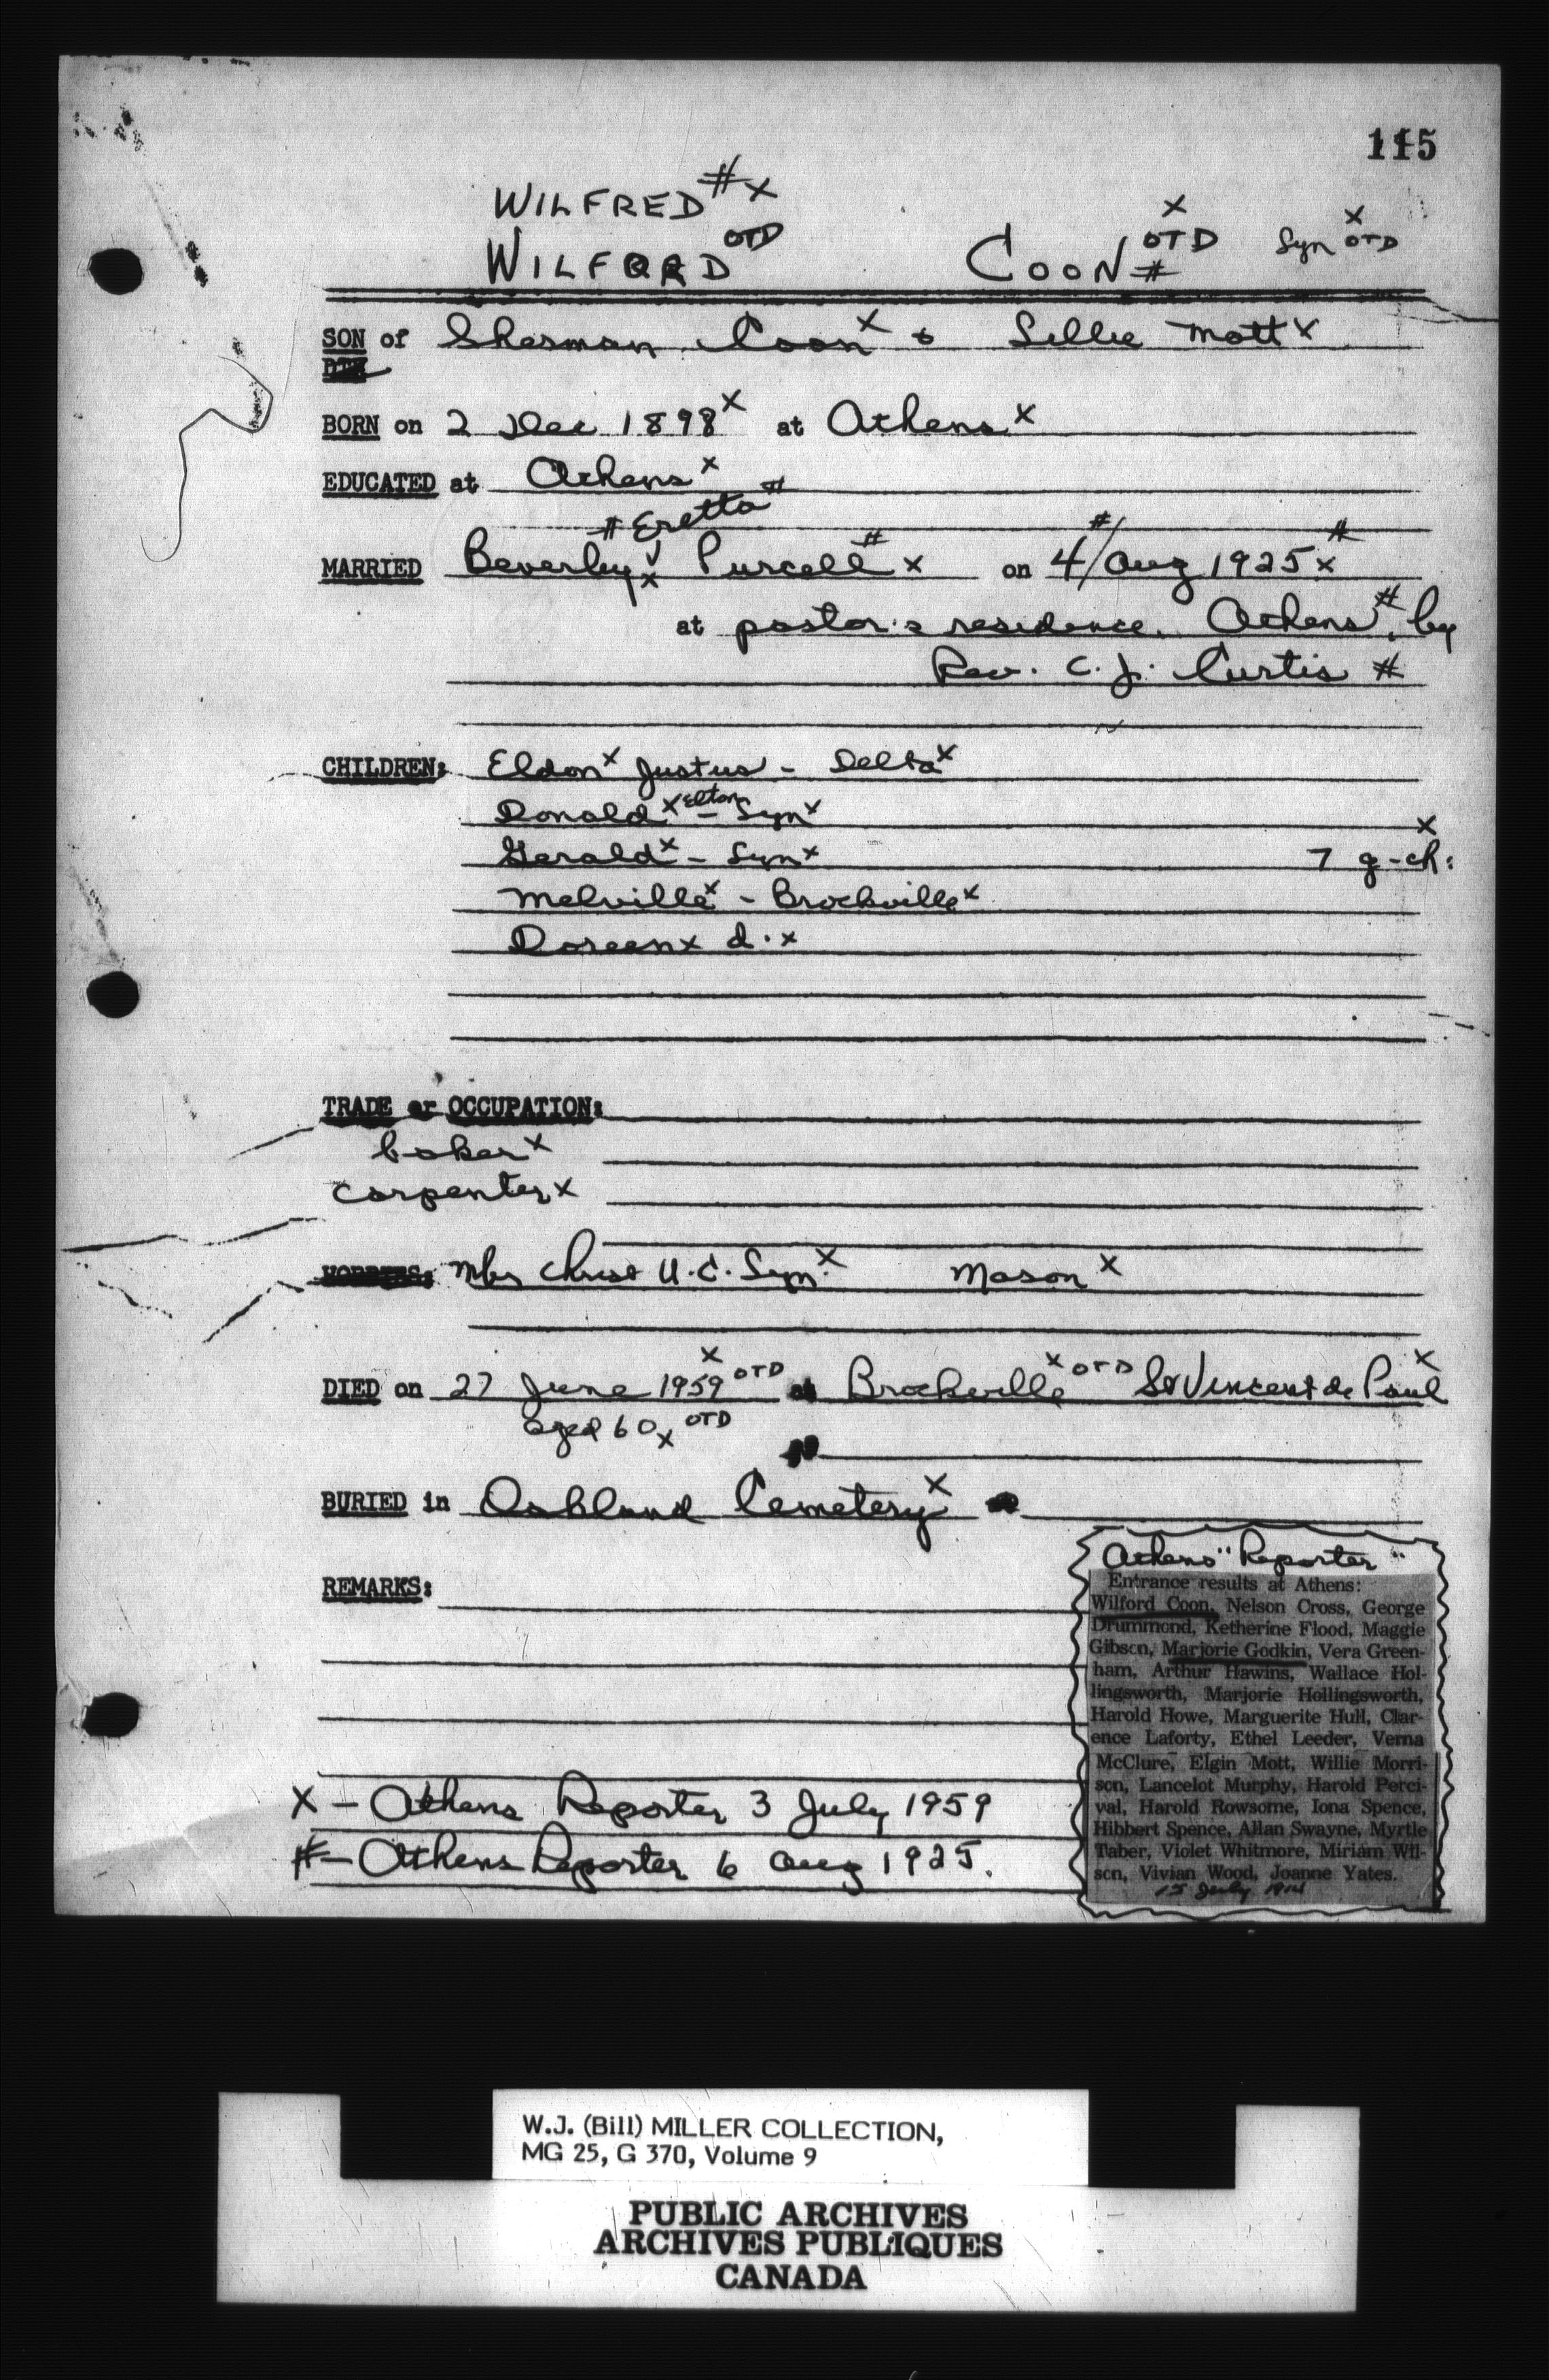 115
WILFRED # x
WILFORD OTD COON # x OTD Syn x OTD
SON of Sherman Coon x & Lillie Mott x
BORN on 2 Dec 1898 x at Athens x
EDUCATED at Athens x
# Eretta #
MARRIED Beverley x Purcell # x on 4 #/ Aug 1925 x #
at pastor's residence, Athens #, by
Rev. C. J. Curtis #
CHILDREN: Eldon x Justus - Delta x
Donald x Elton - Syn x
Gerald x - Syn x 7 g-ch: x
Melville x - Brockville x
Doreen x d. x
TRADE or OCCUPATION:
baker x
carpenter x
HOBBIES: Mbr Christ U.C. Syn. x Mason x
DIED on 27 June 1959 x OTD at Brockville x OTD St Vincent de Paul x
aged 60 x OTD
BURIED in Oakland Cemetery x
Athens "Reporter"
REMARKS:
Entrance results at Athens:
Wilford Coon, Nelson Cross, George
Drummond, Ketherine Flood, Maggie
Gibson, Marjorie Godkin, Vera Green-
ham, Arthur Hawins, Wallace Hol-
lingsworth, Marjorie Hollingsworth,
Harold Howe, Marguerite Hull, Clar-
ence Laforty, Ethel Leeder, Verna
McClure, Elgin Mott, Willie Morri-
son, Lancelot Murphy, Harold Perci-
val, Harold Rowsome, Iona Spence,
Hibbert Spence, Allan Swayne, Myrtle
Taber, Violet Whitmore, Miriam Wil-
son, Vivian Wood, Joanne Yates.
15 July 1914
X - Athens Reporter 3 July 1959
# - Athens Reporter 6 Aug 1925.
W.J. (Bill) MILLER COLLECTION,
MG 25, G 370, Volume 9
PUBLIC ARCHIVES
ARCHIVES PUBLIQUES
CANADA